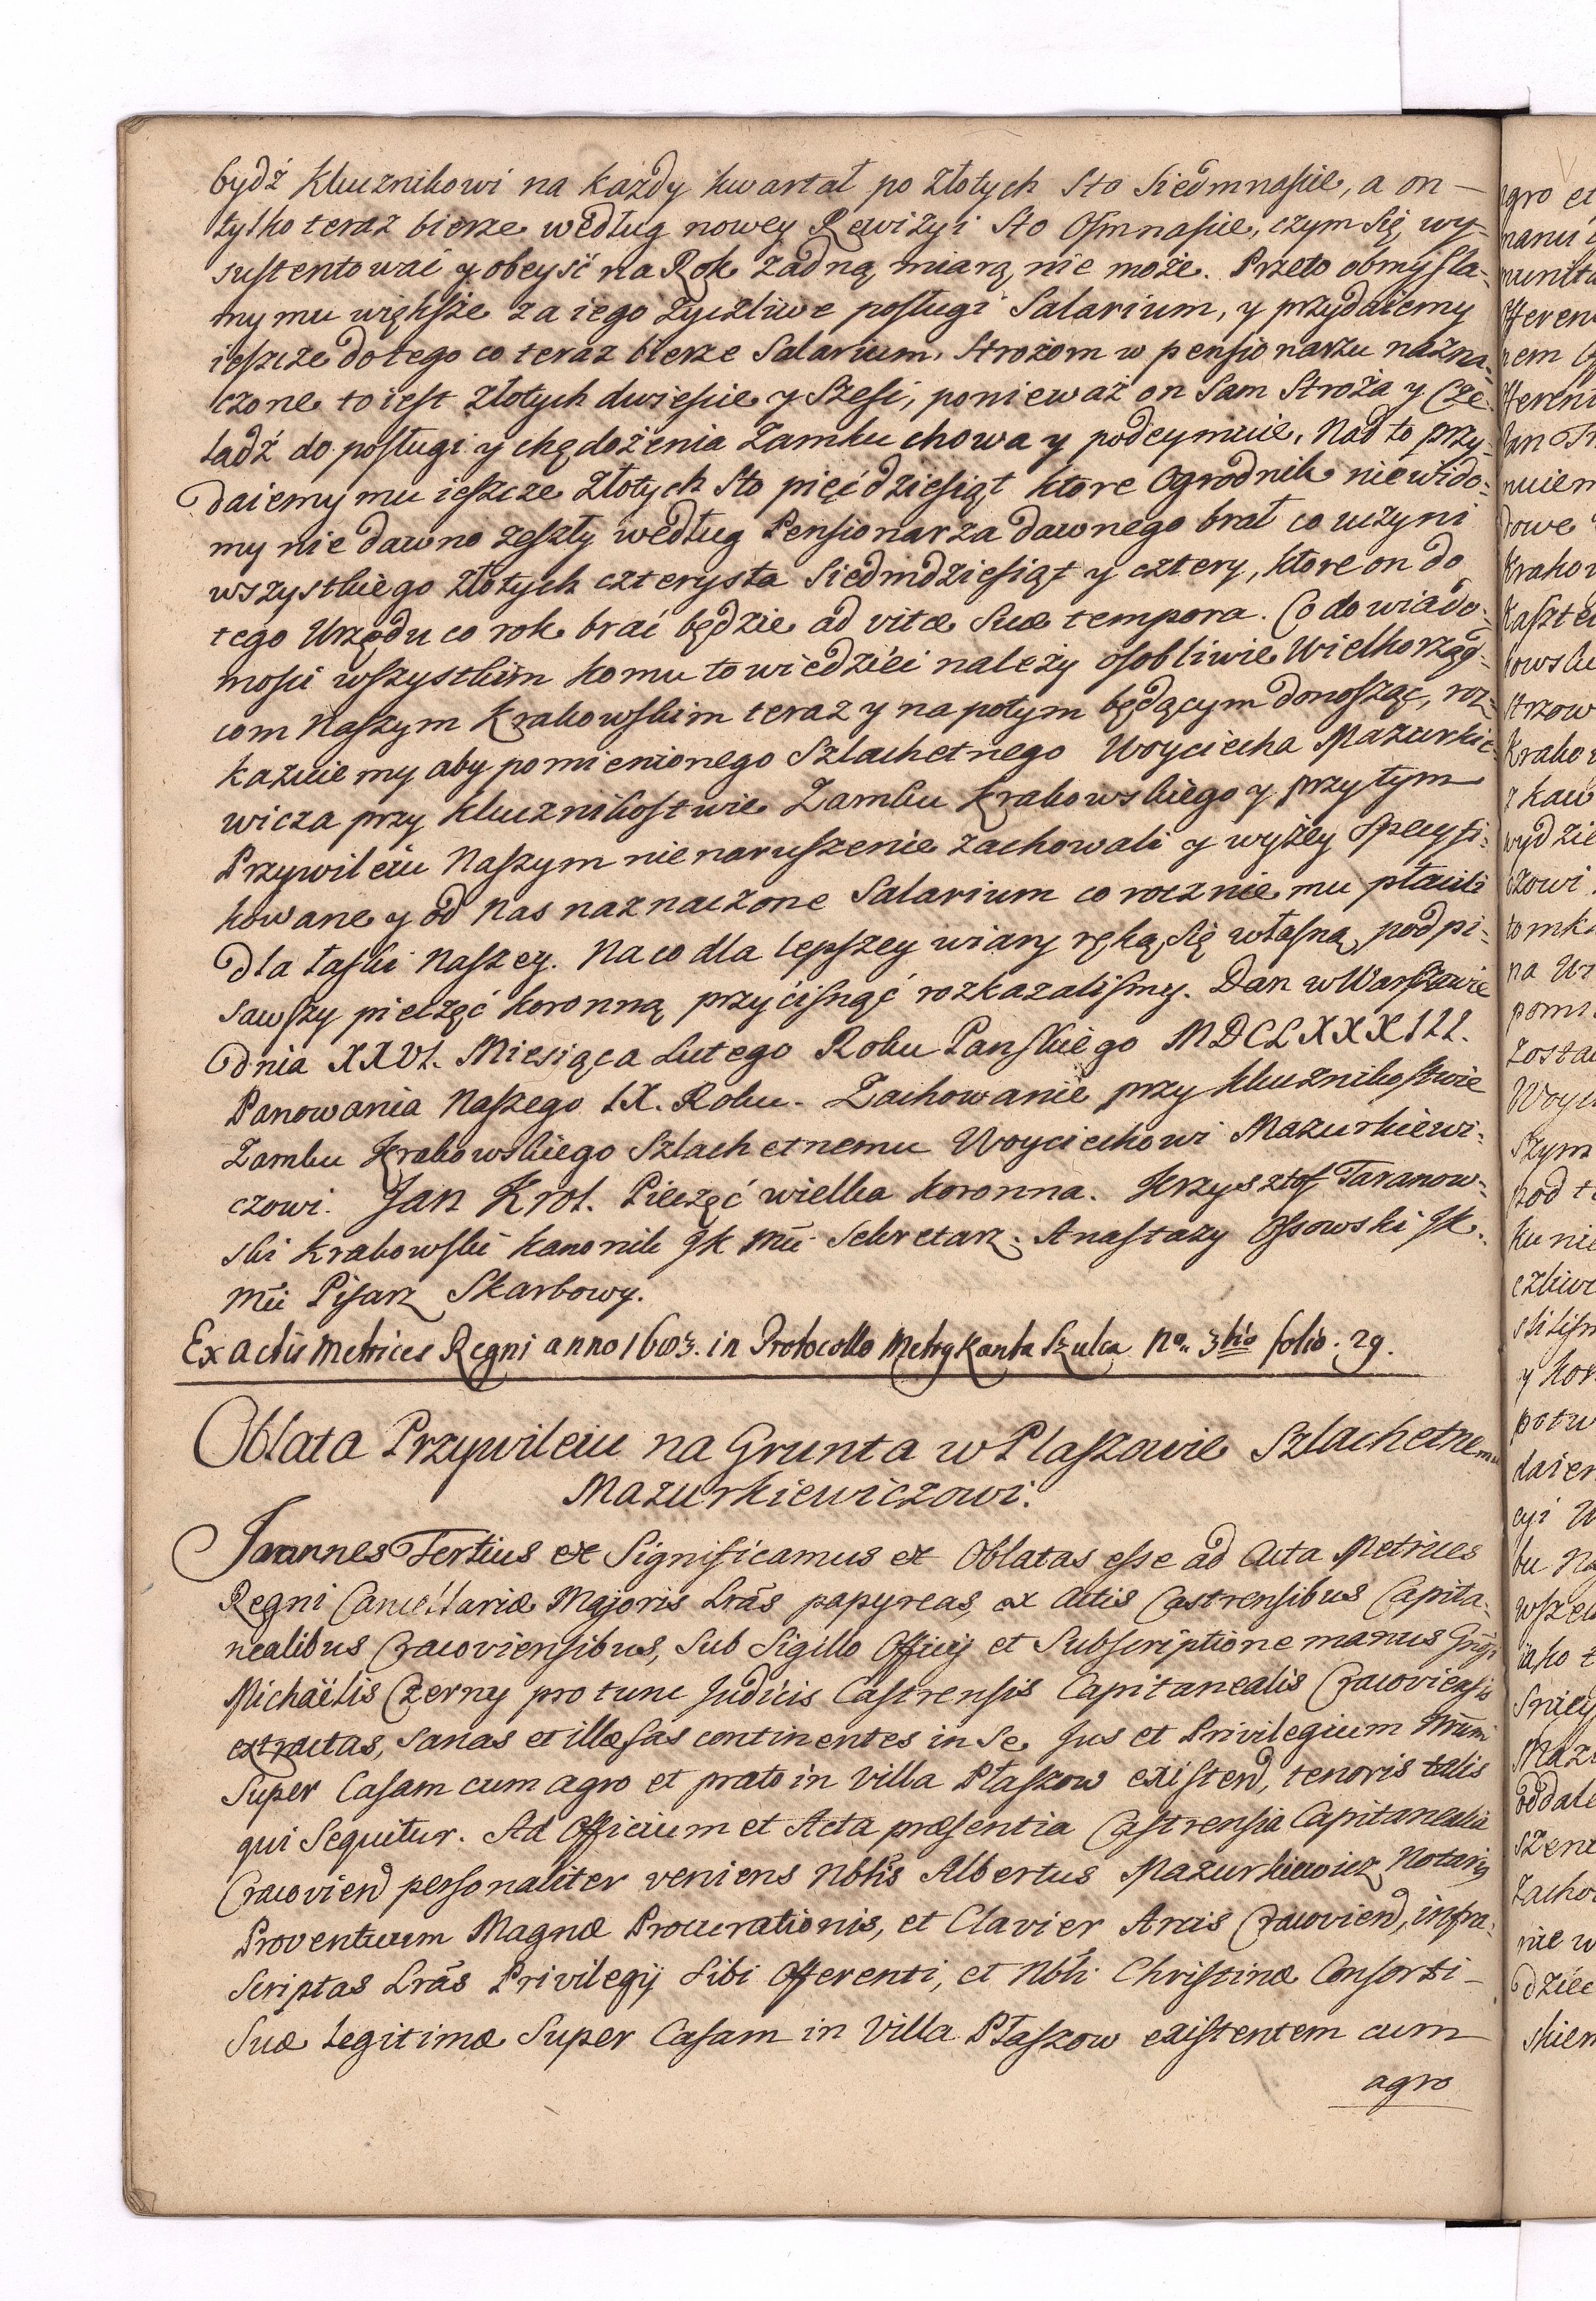 bydź Klucznikowi na każdy kwartał po Złotych Sto Siedmnaście, a on —
tylko teraz bierze według nowey Rewizyi Sto Osmnaście, czym się wy-
sustentować y obeyść na Rok żadną miarą nie może. Przeto obmysla-
my mu większe za iego życzliwe posługi Salarium, y przydaiemy
ieszcze do tego co teraz bierze Salarium, Strożom w pensionarzu nazna-
czone to iest Złotych dwieście y Szesć, ponieważ on Sam Stroża y Cze-
ladź do posługi y chędożenia Zamku chowa y podeymuie. Nad to przy-
daiemy mu ieszcze Złotych Sto pięćdziesiąt ktore Ogrodnik niewido-
my nie dawno zeszły według Pensionarza dawnego brał co uczyni
wszystkiego złotych czterysta Siedmdziesiąt y cztery, ktore on do
tego Urzędu co rok brać będzie ad vitæ Suæ tempora. Co do wiado-
mosci wszystkim komu to wiedzieć należy osobliwie Wielkorząd-
com Naszym Krakowskim teraz y na potym będącym donosząc, roz-
kazuiemy aby pomienionego Szlachetnego Woyciecha Mazurkie-
wicza przy Klucznikostwie Zamku Krakowskiego y przytym
Przywileiu Naszym nienaruszenie zachowali y wyżey Specyfi-
kowane y od Nas naznaczone Salarium co rocznie mu płacili
dla łaski Naszey. Na co dla lepszey wiary ręką się własną podpi-
sawszy pieczęć koronną przycisnąć rozkazalismy. Dan w Warszawie
dnia XXVI. Miesiąca Lutego Roku Panskiego MDCLXXXIII.
Panowania Naszego IX. Roku. Zachowanie przy Klucznikostwie
Zamku Krakowskiego Szlachetnemu Woyciechowi Mazurkiewi-
czowi. Jan Krol. Pieczęć wielka koronna. Krzysztof Taranow-
ski Krakowski Kanonik JK Mci Sekretarz. Anastazy Ossowski JK.
Mci Pisarz Skarbowy.
Ex actis Metrices Regni anno 1603. in Protocollo Metrykanta Szulca No. 3tio folio. 29.
Oblata Przywileiu na Grunta w Płaszowie Szlachetnemu
Mazurkiewiczowi.
Joannes Tertius &c Significamus &c Oblatas esse ad Acta Metrices
Regni Cancellariæ Majoris Lrās papyreas, ex Actis Castrensibus Capita-
nealibus Cracoviensibus, Sub Sigillo Officij et Subscriptione manus
Michaëlis Czerny pro tunc Judicis Castrensis Capitanealis Cracoviensis
extractas, sanas et illæsas continentes in Se Jus et Privilegium
Super Casam cum agro et prato in Villa Płaszow existend, tenoris talis
qui Sequitur. Ad Officium et Acta præsentia Castrensia Capitanealia
Cracoviend personaliter veniens Nblis Albertus Mazurkiewicz Notarius
Proventuum Magnæ Procurationis, et Clavier Arcis Cracoviend, infra-
Scriptas Lrās Privilegij Sibi Offerenti, et Nbli Christinæ Consorti —
Suæ Legitimæ Super Casam in Villa Płaszow existentem cum
agro